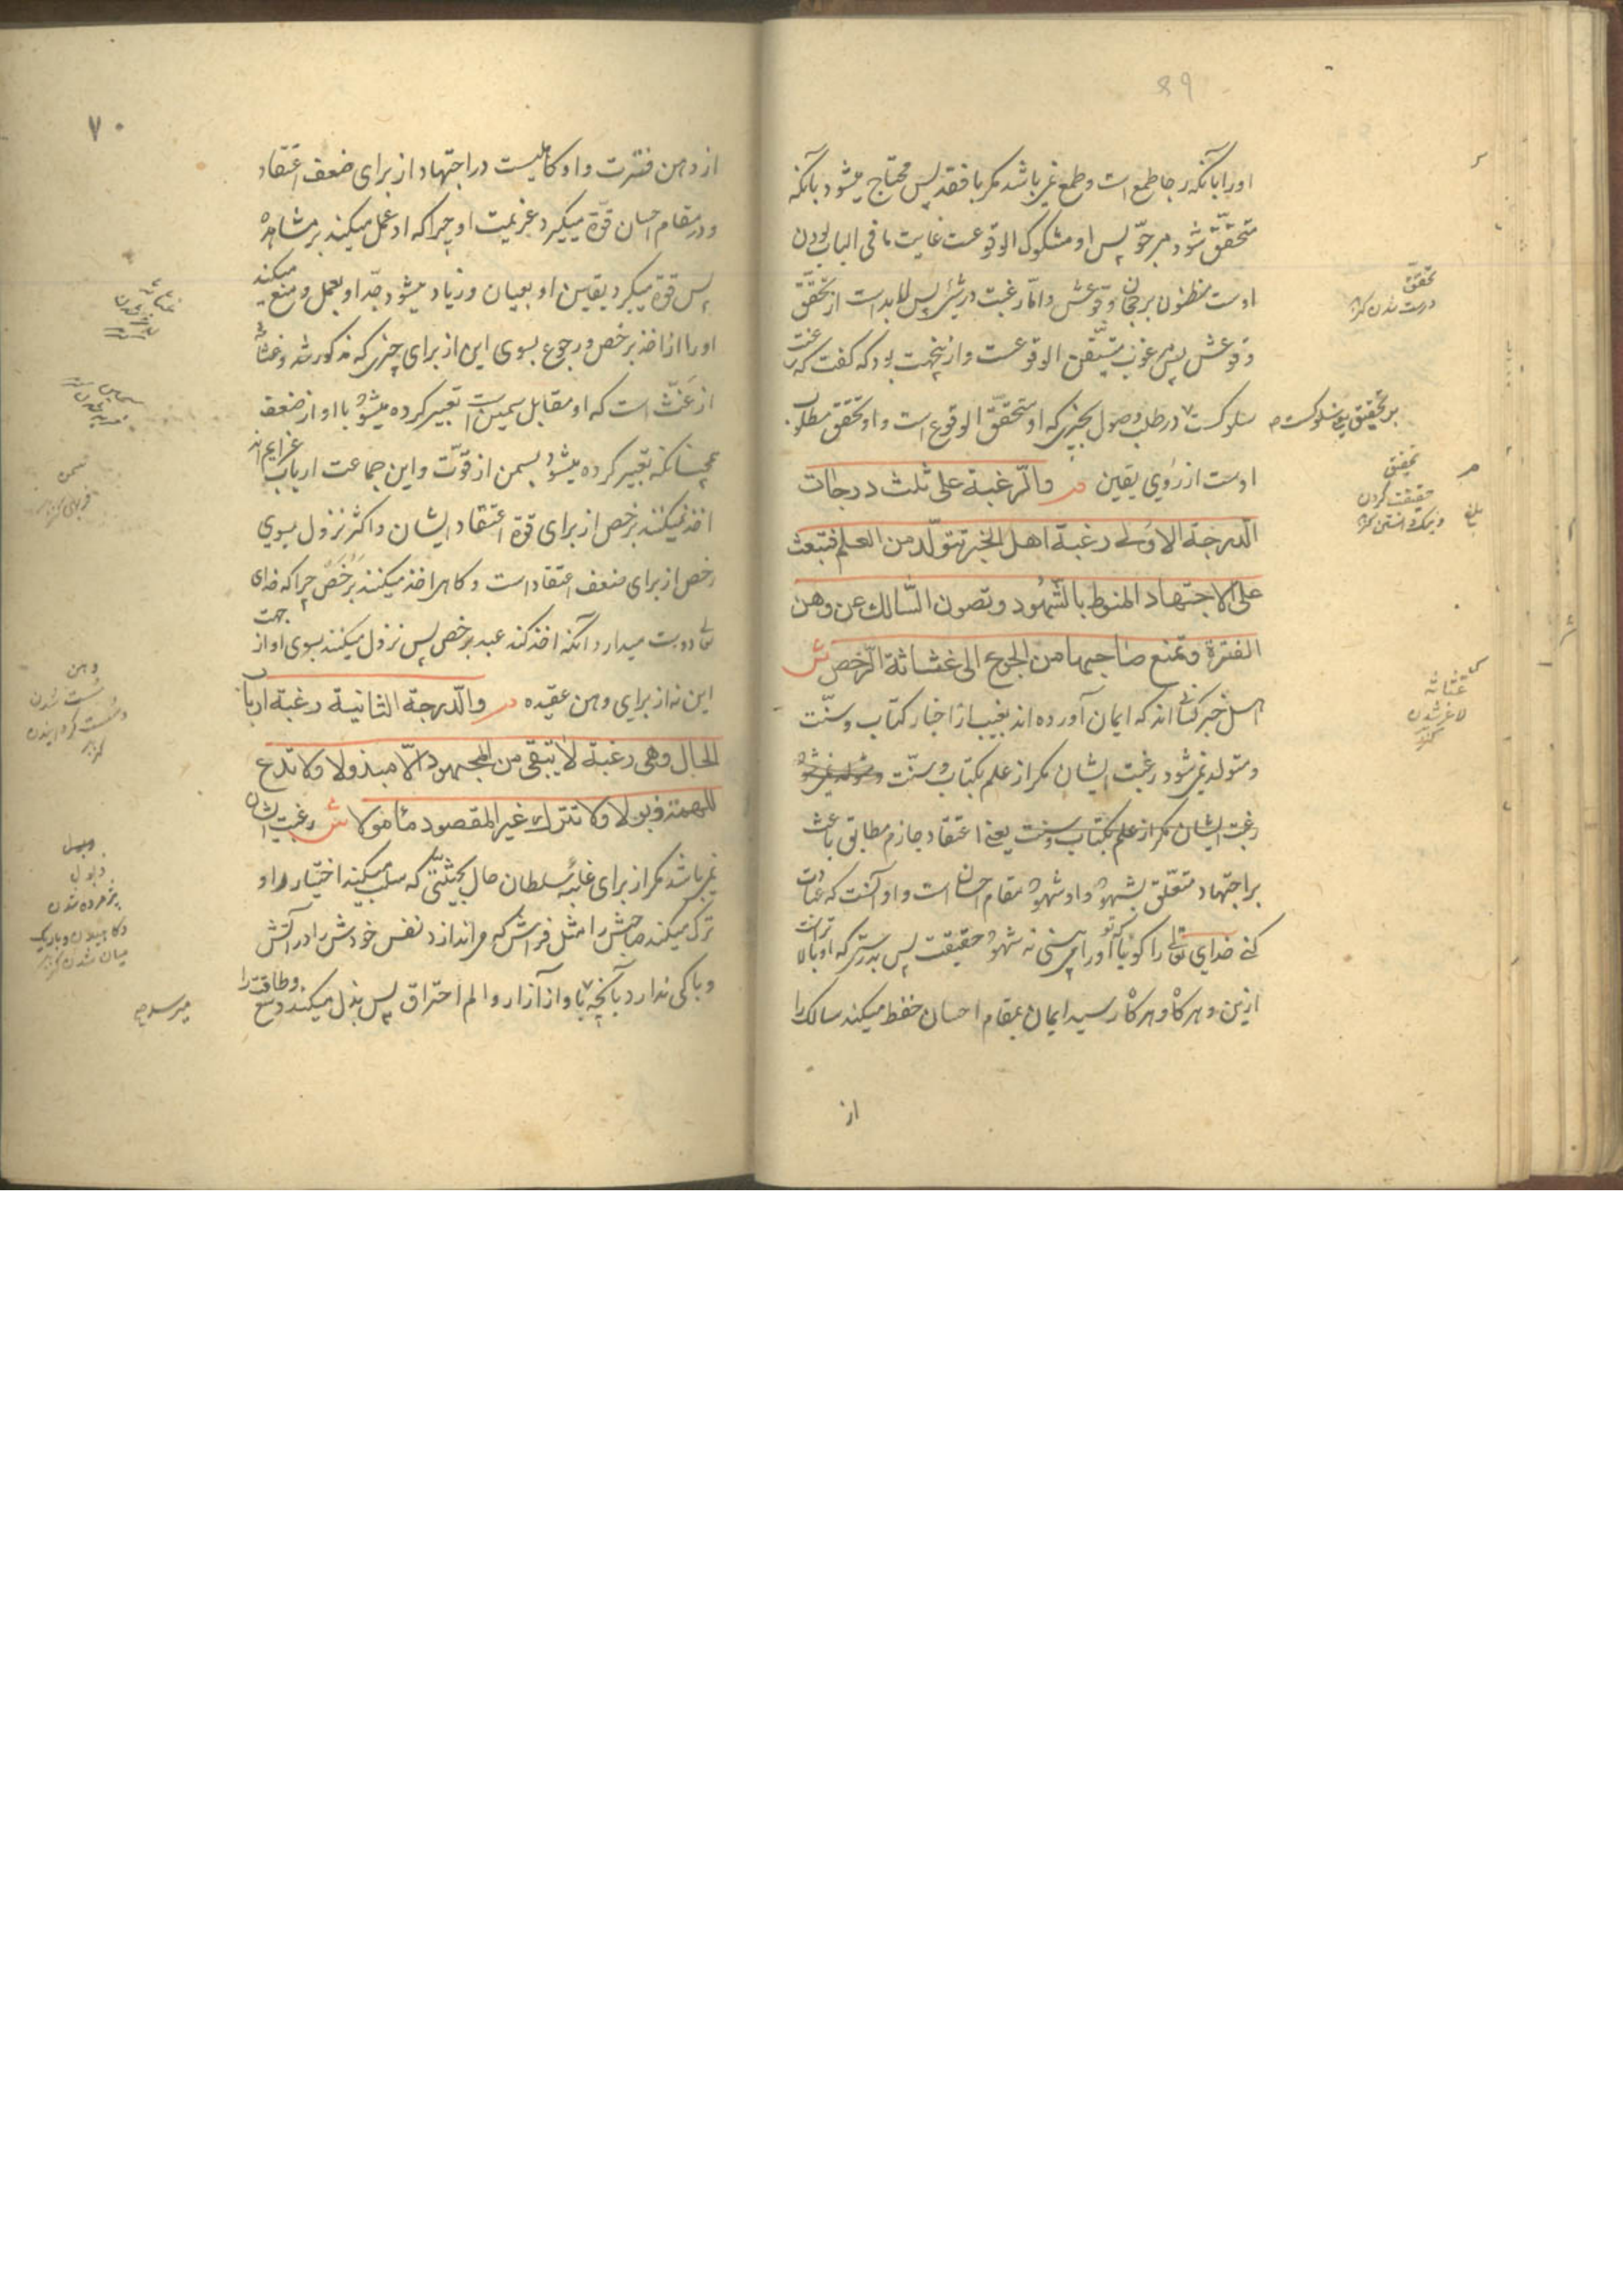 ۶۹
اورا بآنکه رجا طمع است و طمع نمیباشد مکر با فقد پس محتاج میشود بآنکه
متحقق شود مرجوّ پس او مشکوک الوقوعست غایت ما فی الباب بودن
اوست مظنون برجحان وقوعش و امّا رغبت در شئ پس لابد است از تحقّق
وقوعش پس مرغوب متیقّن الوقوعست و ازینجهت بود که گفت که رغبت
سلوکست در طلب وصول بچیزی که او متحقّق الوقوع است و او تحقق مطلوب
بر تحقیق یعنی سلوکست
اوست از روی یقین م والرّغبة علی ثلث درجات
الدرجة الاولی رغبة اهل الخبر تتولّد من العلم فتبعث
علی الاجتهاد المنوط بالشهود وتصون السّالک عن وهن
الفترة وتمنع صاحبها من الرجوع الی غثاثة الرّخص ش
اهل خبر کسانی اند که ایمان آورده اند بغیب از اخبار کتاب و سنّت
و متولد نمیشود رغبت ایشان مکر از علم بکتاب و سنّت
رغبت ایشان مکر از علم بکتاب و سنت یعنی اعتقاد جازم مطابق باعث
بر اجتهاد متعلّق بشهود و او شهود مقام احسان است و او آنست که عبادت
کنی خدای تعالی را کویا که تو او را می بینی نه شهود حقیقت پس بدرستی که او بالاتر است
ازین و هرکاه و هرکاه رسید ایمان بمقام احسان حفظ میکند سالک را
از
تحقّق
درست شدن کنز
تحقیق
حقیقت کردن
و نیک دانستن کنز
بلغ
غثاثة
لاغر شدن
کنز
۷۰
از وهن فترت و او کاهلیست در اجتهاد از برای ضعف اعتقاد
و در مقام احسان قوّة میکیرد عزیمت او چرا که او عمل میکند بر مشاهده
پس قوّة میکیرد یقین او بعیان و زیاد میشود جدّ او بعمل و منع میکند
او را از اخذ برخص و رجوع بسوی این از برای چیزی که مذکور شد و غثاثه
از غثّ است که او مقابل سمین است تعبیر کرده میشود با او از ضعف
همچنانکه تعبیر کرده میشود بسمن از قوّت و این جماعت ارباب عزایم اند
اخذ نمیکنند برخص از برای قوّة اعتقاد ایشان و اکثر نزول بسوی
رخص از برای ضعف اعتقاد است و کاهی اخذ میکنند برخص چرا که خدای
تعالی دوست میدارد آنکه اخذ کند عبد برخص پس نزول میکنند بسوی او از جهت
این نه از برای وهن عقیده م والدّرجة الثانیة رغبة ارباب
الحال وهی رغبة لا تبقی من المجهود الّا مبذولا ولا تدع
للهمة ذبولا ولا تترک غیر المقصود مأمولا ش رغبت ایشان
نمیباشد مکر از برای غلبه سلطان حال بحیثیتی که سلب میکند اختیار را و
ترک میکند صاحبش را مثل فراش که می اندازد نفس خودش را در آتش
و باکی ندارد بآنچه با او از آزار و الم احتراق پس بذل میکند وسع و طاقت را
سمن
فربهی کنز
وهن
سست شدن
و سست کردانیدن
کنز
ذبول
پژمرده شدن
و کاهیدن و باریک
میان شدن کنز